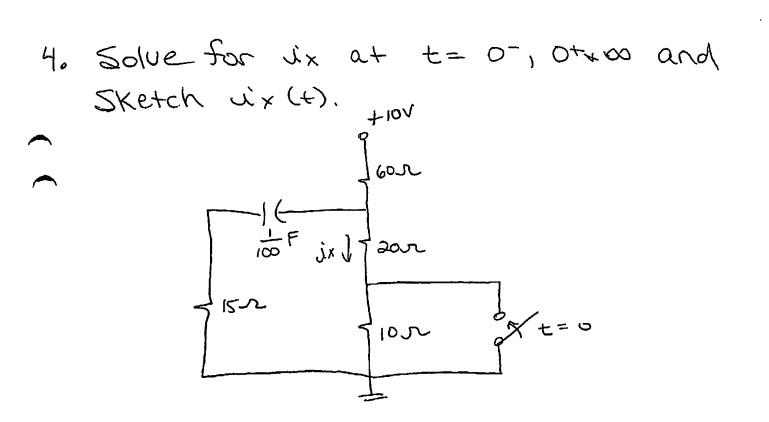 4. Solve for ix at t= 0⁻, 0⁺, ∞ and
Sketch ix(t).
+10V
60Ω
1/100 F
ix↓
20Ω
15Ω
10Ω
t=0